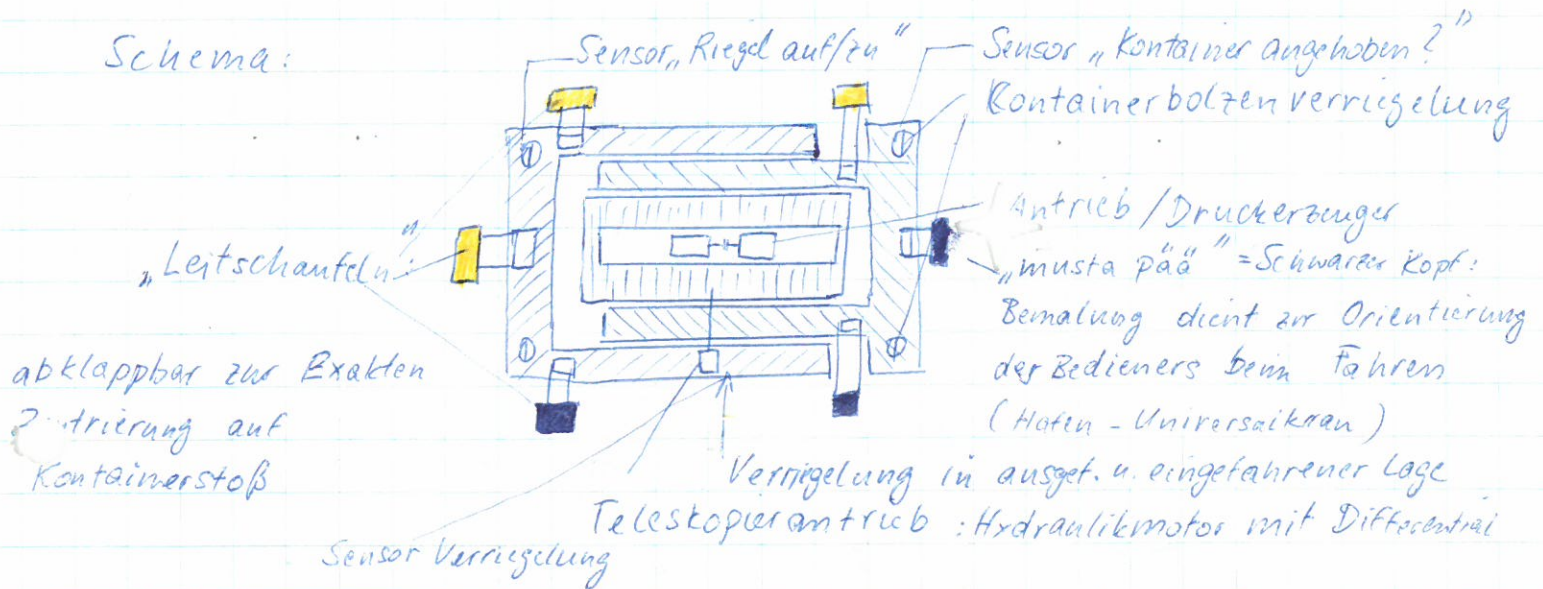 Schema:
Sensor „Riegel auf/zu"
Sensor „Kontainer angehoben?"
Kontainerbolzenverriegelung
Antrieb/Druckerzeuger
„musta pää" = Schwarzer Kopf:
Bemalung dient zur Orientierung
des Bedieners beim Fahren
(Hafen-Universalkran)
„Leitschaufeln":
abklappbar zur Exakten
auf
Kontainerstoß
Verriegelung in ausgef. u. eingefahrener Lage
Teleskopierantrieb: Hydraulikmotor mit Differential
Sensor Verriegelung